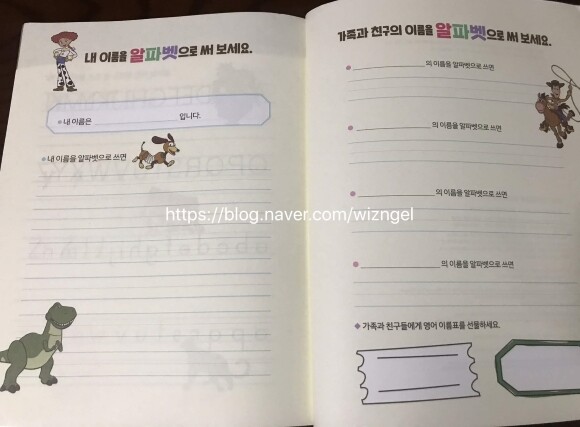 내 이름을 알파벳으로 써 보세요.
내 이름은 입니다.
내 이름을 알파벳으로 쓰면
가족과 친구의 이름을 알파벳으로 써 보세요.
의 이름을 알파벳으로 쓰면
의 이름을 알파벳으로 쓰면
의 이름을 알파벳으로 쓰면
의 이름을 알파벳으로 쓰면
가족과 친구들에게 영어 이름표를 선물하세요.
https://blog.naver.com/wizngel